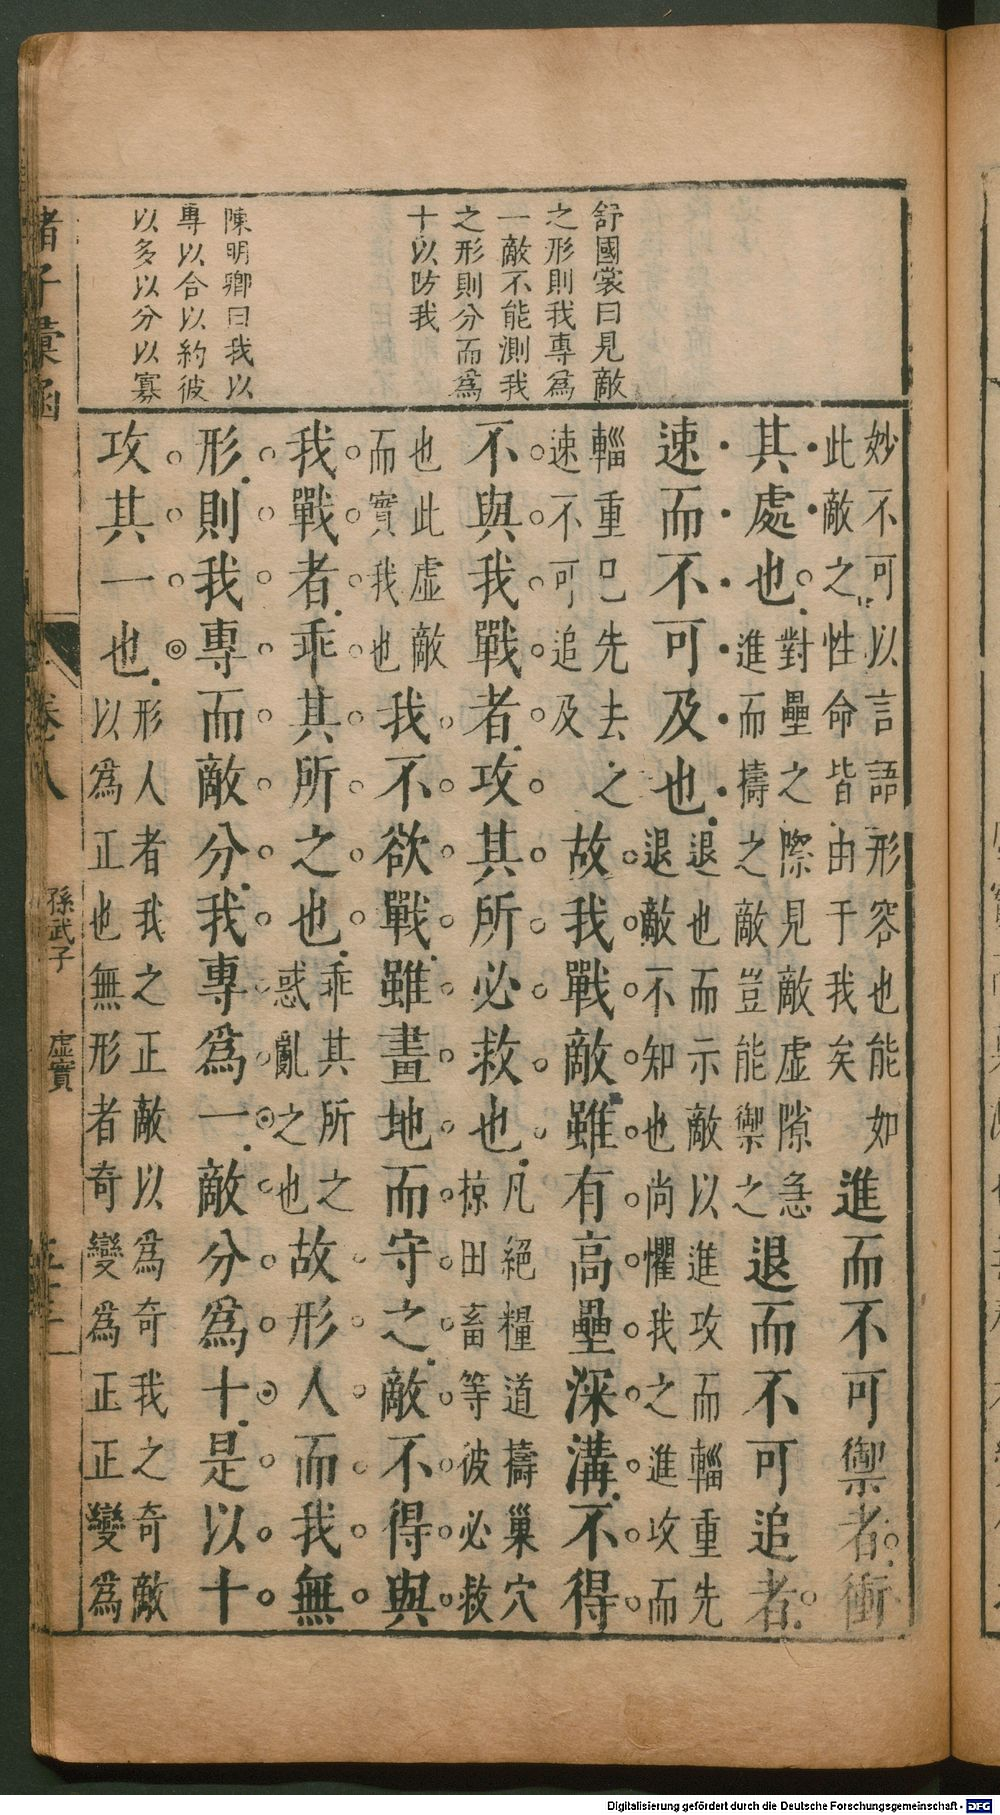 舒國裳曰見敵
之形則我專為
一敵不能測我
之形則分而為
十以防我
陳明卿曰我以
專以合以約彼
以多以分以寡
妙不可以言語形容也能如
此敵之性命皆由于我矣
進而不可禦者衝
其處也
對壘之際見敵虛隙急
進而擣之敵豈能禦之
退而不可追者
速而不可及也
退也而示敵以進攻而輜重先
退敵不知也尚懼我之進攻而
輜重已先去之
速不可追及
故我戰敵雖有高壘深溝不得
不與我戰者攻其所必救也
凡絕糧道擣巢穴
掠田畜等彼必救
也此虛敵
而實我也
我不欲戰雖畫地而守之敵不得與
我戰者乖其所之也
乖其所之
惑亂之也
故形人而我無
形則我專而敵分我專為一敵分為十是以十
攻其一也
形人者我之正敵以為奇我之奇敵
以為正也無形者奇變為正正變為
諸子彙函
卷八
孫武子
虛實
Digitalisierung gefördert durch die Deutsche Forschungsgemeinschaft - DFG